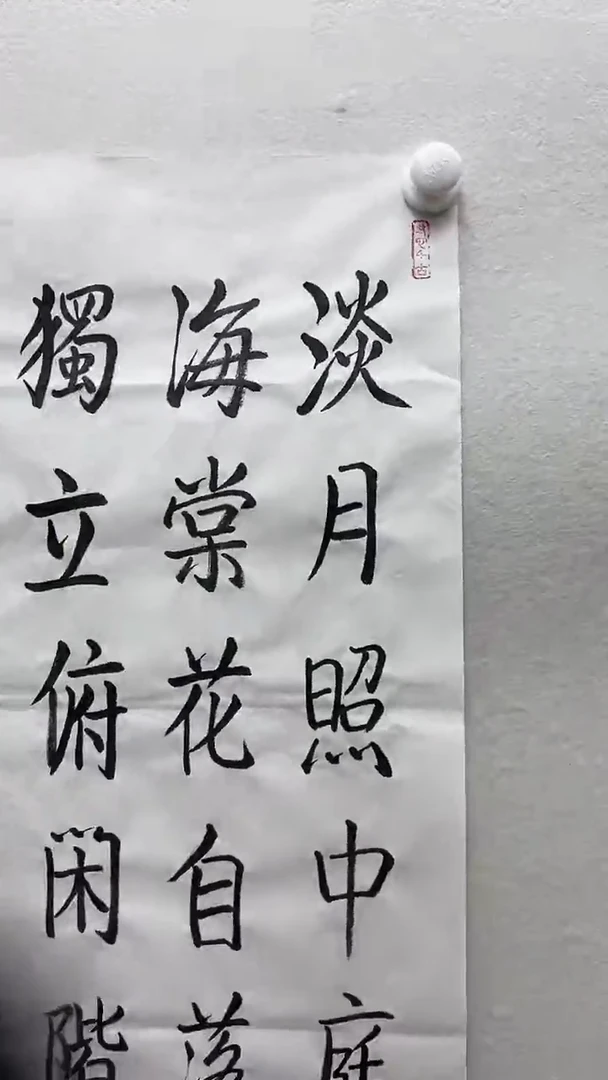 淡月照中庭
海棠花自落
獨立俯閑階